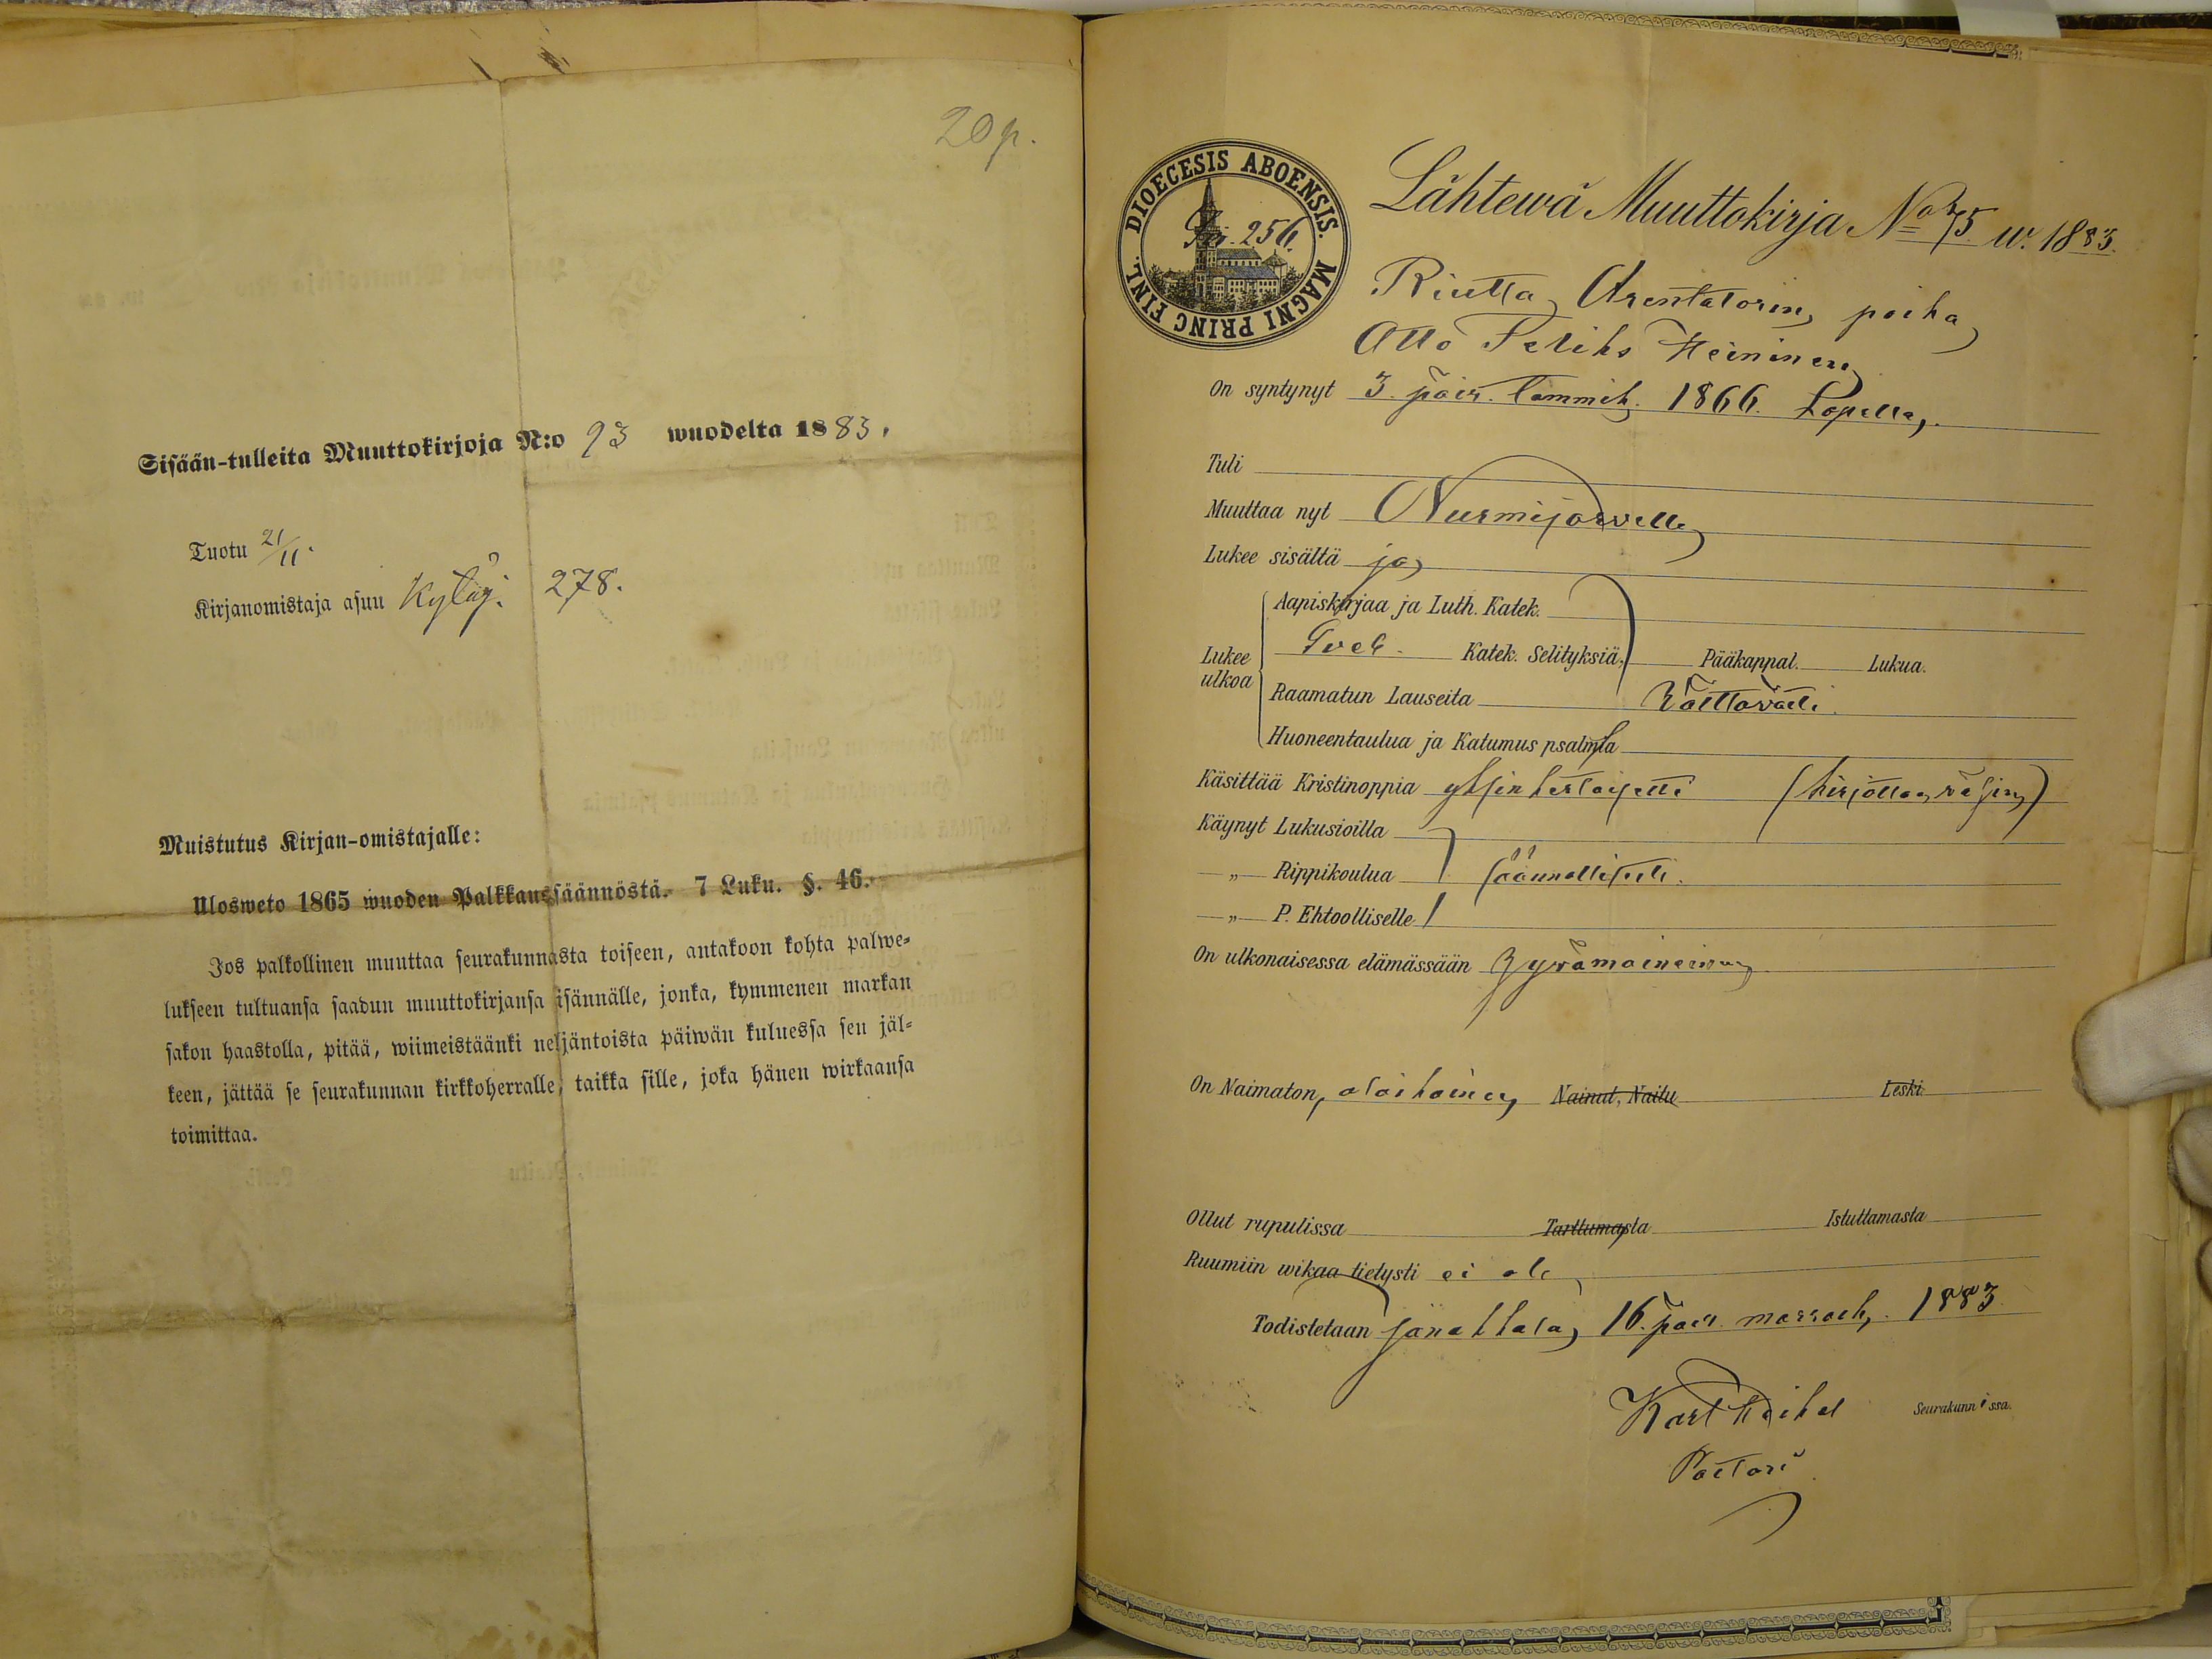 20 p.
Sisään-tulleita Muuttokirjoja N:o 93 wuodelta 1883.
Tuotu 21/11.
Kirjanomistaja asuu Kytäj. 278.
Muistutus Kirjan-omistajalle:
Ulosweto 1865 wuoden Palkkaussäännöstä. 7 Luku. §. 46.
Jos palkollinen muuttaa seurakunnasta toiseen, antakoon kohta palwe-
lukseen tultuansa saadun muuttokirjansa isännälle, jonka, kymmenen markan
sakon haastolla, pitää, wiimeistäänki neljäntoista päiwän kuluessa sen jäl-
keen, jättää se seurakunnan kirkkoherralle, taikka sille, joka hänen wirkaansa
toimittaa.
DIOECESIS ABOENSIS. MAGNI PRINC FINL.
256.
Lähtewä Muuttokirja No 75 w. 1883.
Arentatorin poika
Otto Feliks Heininen
On syntynyt 3. päiv. tammik. 1866. Lopella.
Tuli
Muuttaa nyt Nurmijärvelle
Lukee sisältä ja
Aapiskirjaa ja Luth. Katek.
Lukee ulkoa
Sveb. Katek. Selityksiä. Pääkappal. Lukua.
Raamatun Lauseita välttävästi.
Huoneentaulua ja Katumus psalmia
Käsittää Kristinoppia yksinkertaisesti
Käynyt Lukusioilla
—„— Rippikoulua säännöllisesti.
—„— P. Ehtoolliselle
On ulkonaisessa elämässään hyvämaineinen
On Naimaton, alaikäinen Nainut, Naitu Leski
Ollut rupulissa Tarttumasta Istuttamasta
Ruumiin wikaa tietysti ei ole
Todistetaan Janakkala, 16. päiv. marrask. 1883
Karl
Seurakunnissa.
Pastori